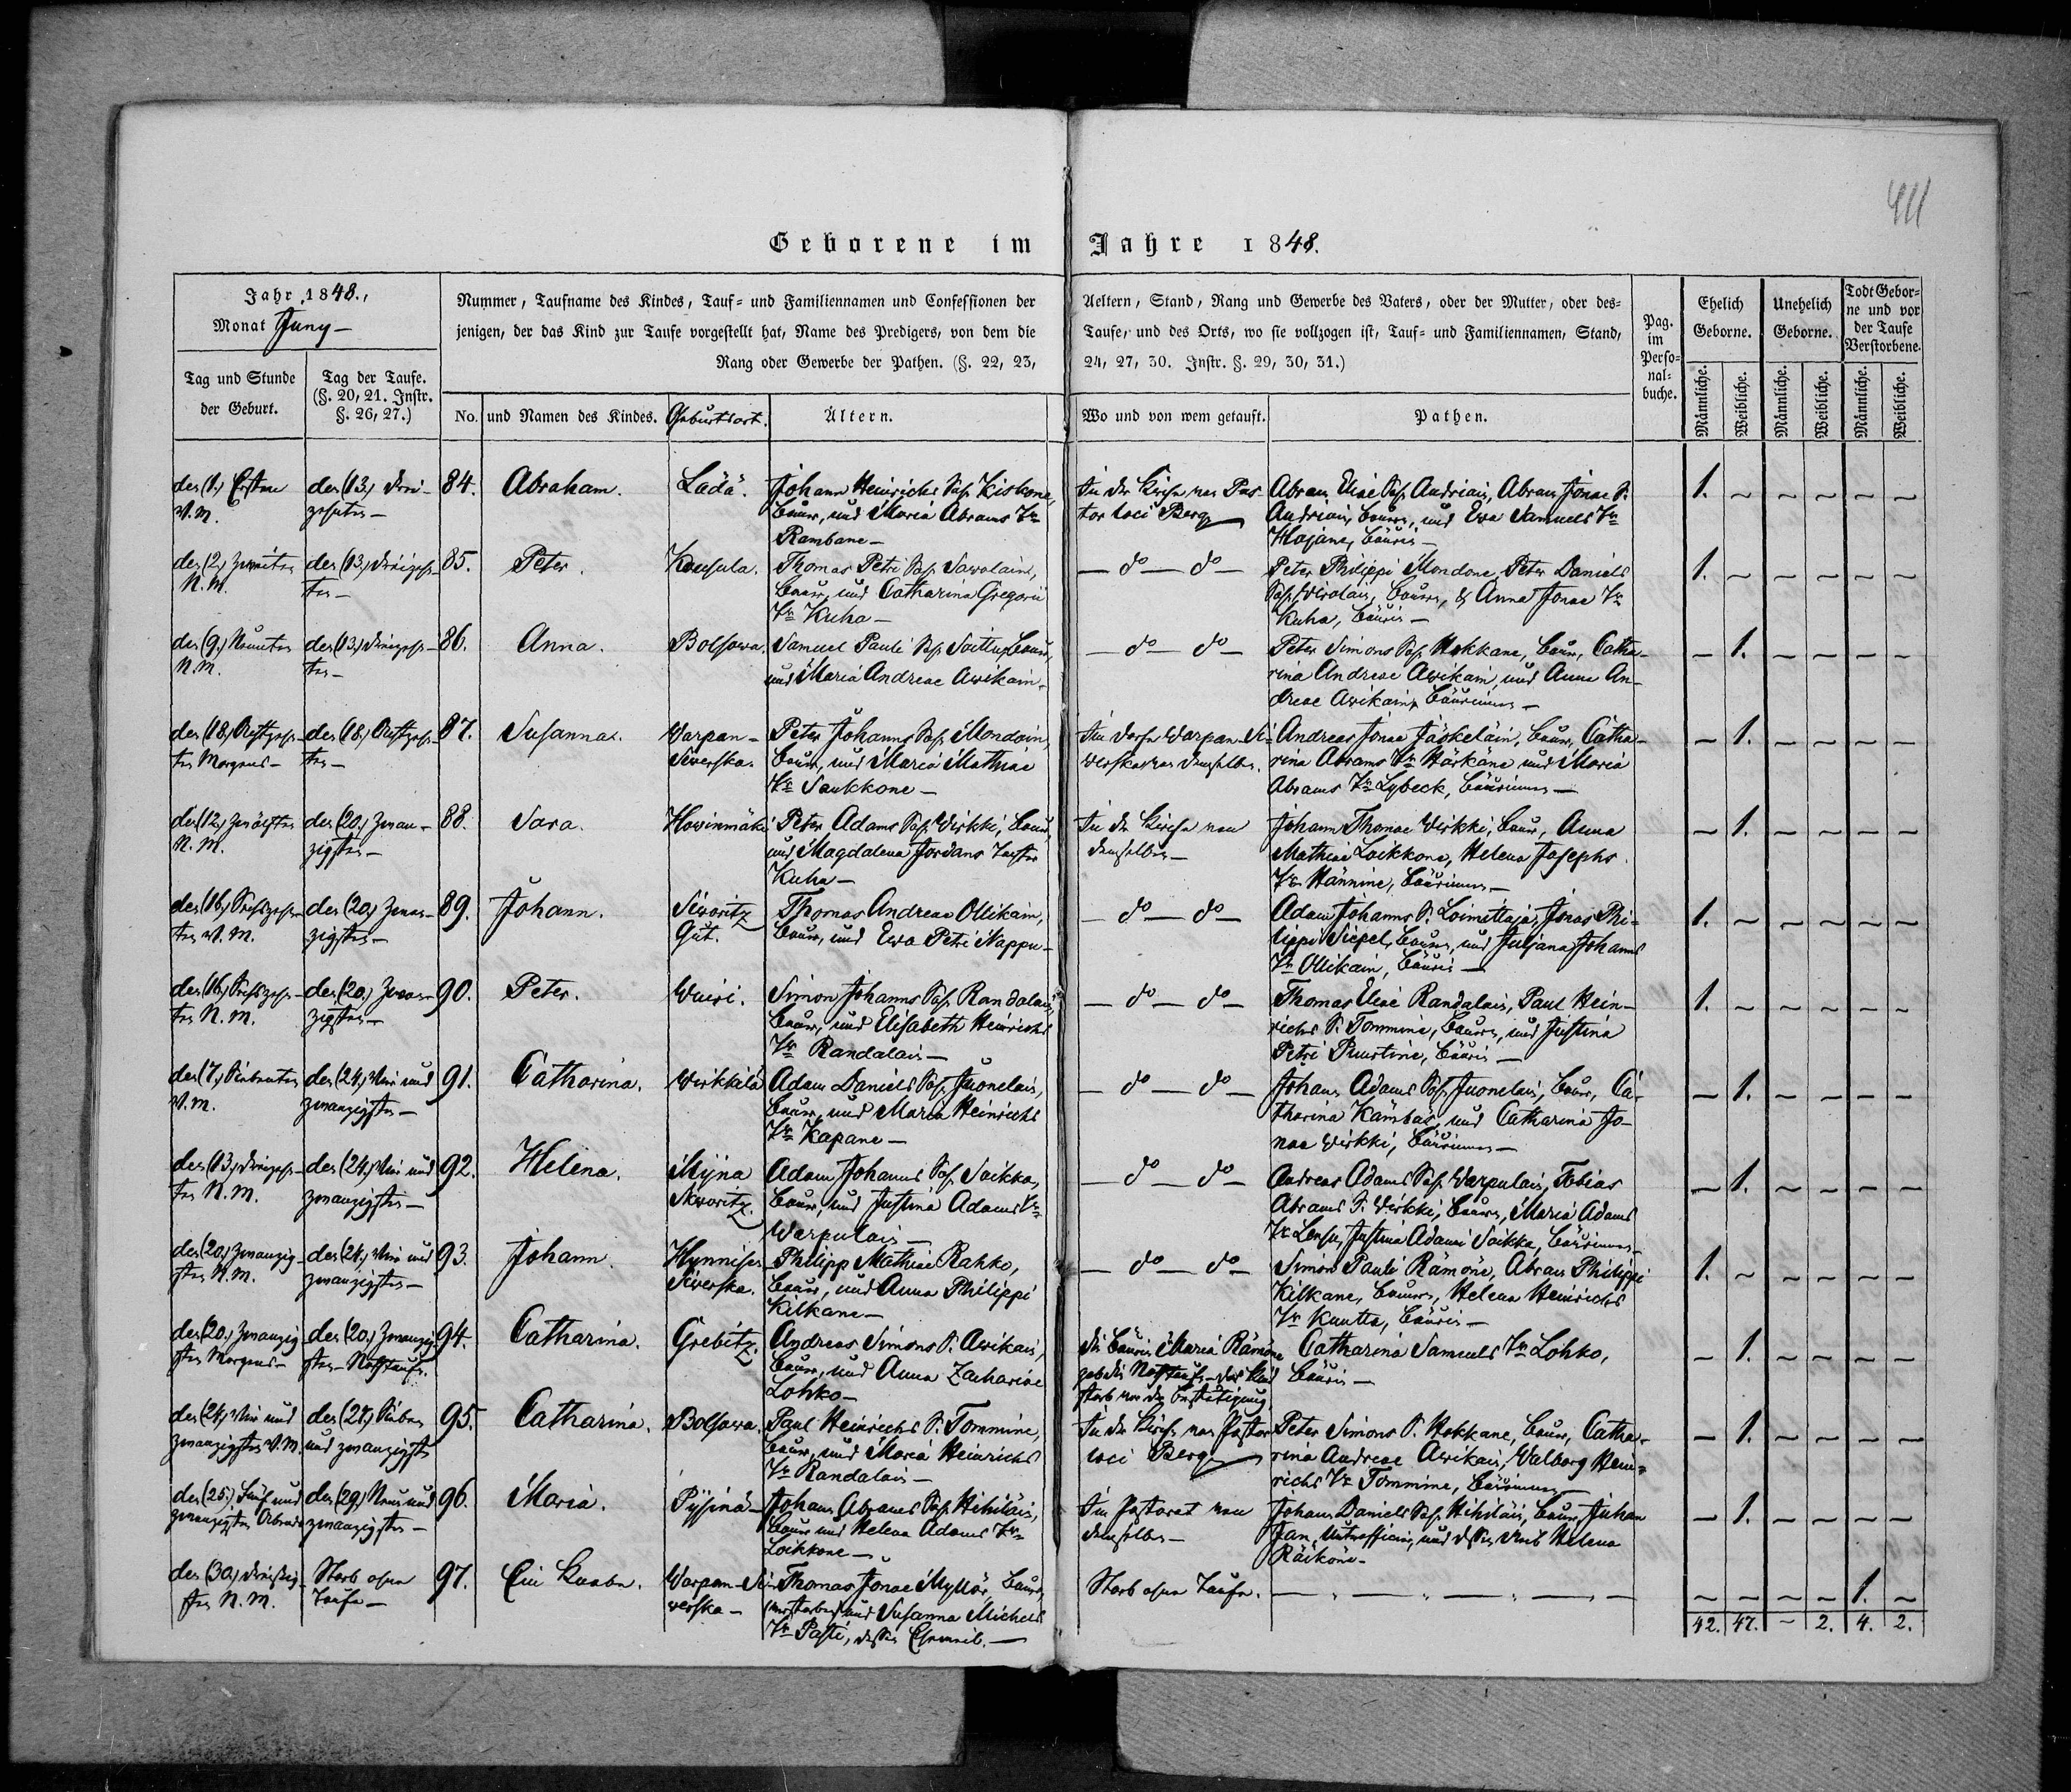 411
Geborene im Jahre 1848.
Jahr 1848.,
Monat Juny —
Nummer, Taufname des Kindes, Tauf- und Familiennamen und Confessionen der Aeltern, Stand, Rang und Gewerbe des Vaters, oder der Mutter, oder des-
jenigen, der das Kind zur Taufe vorgestellt hat, Name des Predigers, von dem die Taufe, und des Orts, wo sie vollzogen ist, Tauf- und Familiennamen, Stand,
Rang oder Gewerbe der Pathen. (§. 22, 23, 24, 27, 30. Instr. §. 29, 30, 31.)
Pag.
im
Perso-
nal-
buche.
Ehelich
Geborne.
Unehelich
Geborne.
Todt Gebor-
ne und vor
der Taufe
Verstorbene.
Tag und Stunde
der Geburt.
Tag der Taufe.
(§. 20, 21. Instr.
§. 26, 27.)
No.
und Namen des Kindes.
Geburtsort.
Ältern.
Wo und von wem getauft.
Pathen.
Männliche.
Weibliche.
Männliche.
Weibliche.
Männliche.
Weibliche.
den (1.) Ersten
V. M.
den (13.) drei-
zehnten —
84.
Abraham.
Lädä.
Johann Heinrichs Sohn Kiskone,
Bauer, und Maria Abrams Tr
Rambane —
In der Kirche von Pas-
tor loci Berg
Abram Eliae Sohn Andriain, Abram Jonae S.
Andriain, Bauern, und Ewa Samuels Tr
Hojane, Bäurin —
1. ~ ~ ~ ~ ~
den (2.) zweiten
N. M.
den (13.) dreizehn-
ten —
85.
Peter.
Konsula.
Thomas Petri Sohn Sawolain,
Bauer, und Catharina Gregorii
Tr Kuha —
— do — do —
Peter Philippi Mondone, Peter Daniels
Sohn Wirolain, Bauern, & Anna Jonae Tr
Kuha, Bäurin —
1. ~ ~ ~ ~ ~
den (9.) Neunten
N. M.
den (13.) dreizehn-
ten —
86.
Anna.
Bolsowa.
Samuel Pauli Sohn Soittu, Bauer,
und Maria Andreae Awikain —
— do — do —
Peter Simons Sohn Hokkane, Bauer, Catha-
rina Andreae Awikain, und Anna An-
dreae Awikain, Bäurinnen —
— 1. ~ ~ ~ ~
den (18.) Achtzehn-
ten Morgens —
den (18.) Achtzehn-
ten —
87.
Susanna.
Warpan-
Siwerska.
Peter Johanns Sohn Mondoin,
Bauer, und Maria Mathiae
Tr Saukkone —
Im Dorfe Warpan-Si-
werska von demselben.
Andreas Jonae Jäökeläin, Bauer, Catha-
rina Abrams Tr Härkäne und Maria
Abrams Tr Lybeck, Bäurinnen —
— 1. ~ ~ ~ ~
den (12.) zwölften
N. M.
den (20.) Zwan-
zigsten —
88.
Sara.
Howinmäki
Peter Adams Sohn Wirkki, Bauer,
und Magdalena Jordans Tochter
Kuha —
In der Kirche von
demselben —
Johann Thomae Wirkki, Bauer, Anna
Mathiae Loikkone, Helena Josephs
Tr Hännine, Bäurinnen —
— 1. ~ ~ ~ ~
den (16.) Sechszehn-
ten V. M.
den (20.) Zwan-
zigsten —
89.
Johann.
Siworitz
Gut.
Thomas Andreae Ollikain,
Bauer, und Ewa Petri Nappu —
— do — do —
Adam Johanns S. Loimittaja, Jonas Phi-
lippi Siepel, Bauern, und Juljana Johanns
Tr Ollikain, Bäurin —
1. ~ ~ ~ ~ ~
den (16.) Sechszehn-
ten N. M.
den (20.) Zwan-
zigsten —
90.
Peter.
Wuiri.
Simon Johanns Sohn Randalain,
Bauer, und Elisabeth Heinrichs
Tr Randalain —
— do — do —
Thomas Eliae Randalain, Paul Hein-
richs S. Tommine, Bauern, und Justina
Petri Puustine, Bäurin —
1. ~ ~ ~ ~ ~
den (7.) Siebenten
V. M.
den (24.) Vier und
zwanzigsten —
91.
Catharina.
Wirkkilä
Adam Daniels Sohn Juonelain,
Bauer, und Maria Heinrichs
Tr Kapane —
— do — do —
Johann Adams Sohn Juonelain, Bauer, Ca-
tharina Kämbas, und Catharina Jo-
nae Wirkki, Bäurinnen —
— 1. ~ ~ ~ ~
den (13.) dreizehn-
ten N. M.
den (24.) Vier und
zwanzigsten —
92.
Helena.
Myna
Skworitz.
Adam Johanns Sohn Soikka,
Bauer, und Justina Adams Tr
Warpulain —
— do — do —
Andreas Adams Sohn Warpulain, Tobias
Abrams S. Wirkki, Bauern, Maria Adams
Tr Lensu, Justina Adami Soikka, Bäurinnen —
— 1. ~ ~ ~ ~
den (20.) Zwanzig-
sten N. M.
den (24.) Vier und
zwanzigsten —
93.
Johann.
Hynnisen
Siwerska.
Philipp Mathiae Rahko,
Bauer, und Anna Philippi
Kilkane —
— do — do —
Simon Pauli Rämöne, Abram Philippi
Kilkane, Bauern, Helena Heinrichs
Tr Kuutta, Bäurin —
1. ~ ~ ~ ~ ~
den (20.) Zwanzig-
sten Morgens —
den (20.) Zwanzig-
sten — Nothtaufe.
94.
Catharina.
Grebitz.
Andreas Simons S. Awikain,
Bauer, und Anna Zachariae
Lohko —
Die Bäurin Maria Rämöne
gab die Nothtaufe — das Kind
starb vor der Bestätigung.
Catharina Samuels Tr Lohko,
Bäurin —
— 1. ~ ~ ~ ~
den (24.) Vier und
zwanzigsten V. M.
den (27.) Sieben
und zwanzigsten
95.
Catharina.
Bolsowa.
Paul Heinrichs S. Tommine,
Bauer, und Maria Heinrichs
Tr Randalain —
In der Kirche von Pastor
loci Berg
Peter Simons S. Hokkane, Bauer, Catha-
rina Andreae Awikain, Walborg Hein-
richs Tr Tommine, Bäurinnen —
— 1. ~ ~ ~ ~
den (25.) Fünf und
zwanzigsten Abends
den (29.) Neun und
zwanzigsten —
96.
Maria.
Pysinä —
Johann Abrams Sohn Hihiläin,
Bauer und Helena Adams Tr
Loikkone —
Im Pastorat von
demselben —
Johann Daniels Sohn Hihiläin, Bauer, Juhan
Jan, Unterofficier, und dessen Weib Helena
Räiköne —
— 1. ~ ~ ~ ~
den (30.) dreissig-
sten N. M.
Starb ohne
Taufe —
97.
Ein Knabe.
Warpan-Si-
werska —
Thomas Jonae Myllär, Bauer,
(verstorben) und Susanna Michels
Tr Pasti, dessen Eheweib. —
Starb ohne Taufe.
~ ~ ~ ~ 1. ~
42. 47. ~ 2. 4. 2.